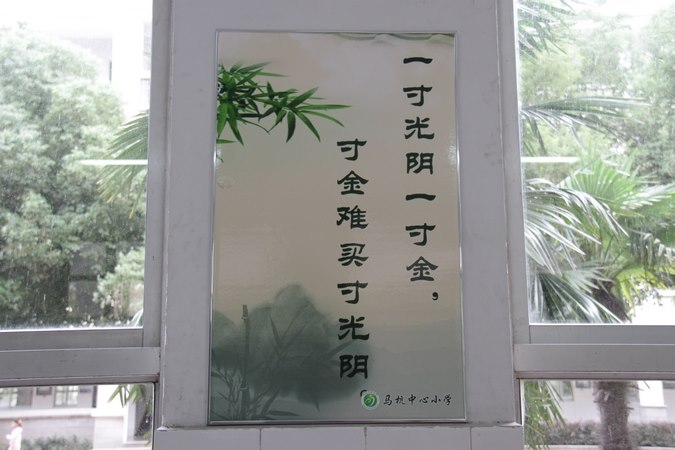 一寸光阴一寸金，
寸金难买寸光阴。
马杭中心小学